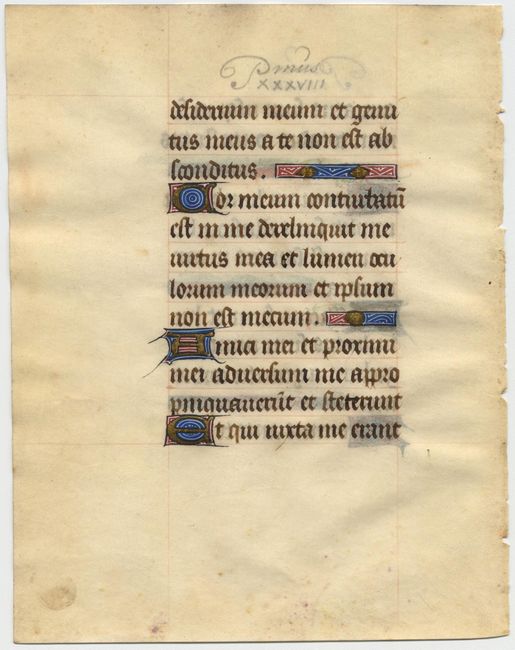 Pmus
XXXVIII
desiderium meum et gemi
tus meus a te non est ab
sconditus.
Cor meum conturbatū
est in me dereliquit me
uirtus mea et lumen ocu
lorum meorum et ipsum
non est mecum.
Amici mei et proximi
mei aduersum me appro
pinquauerūt et steterunt
Et qui iuxta me erant